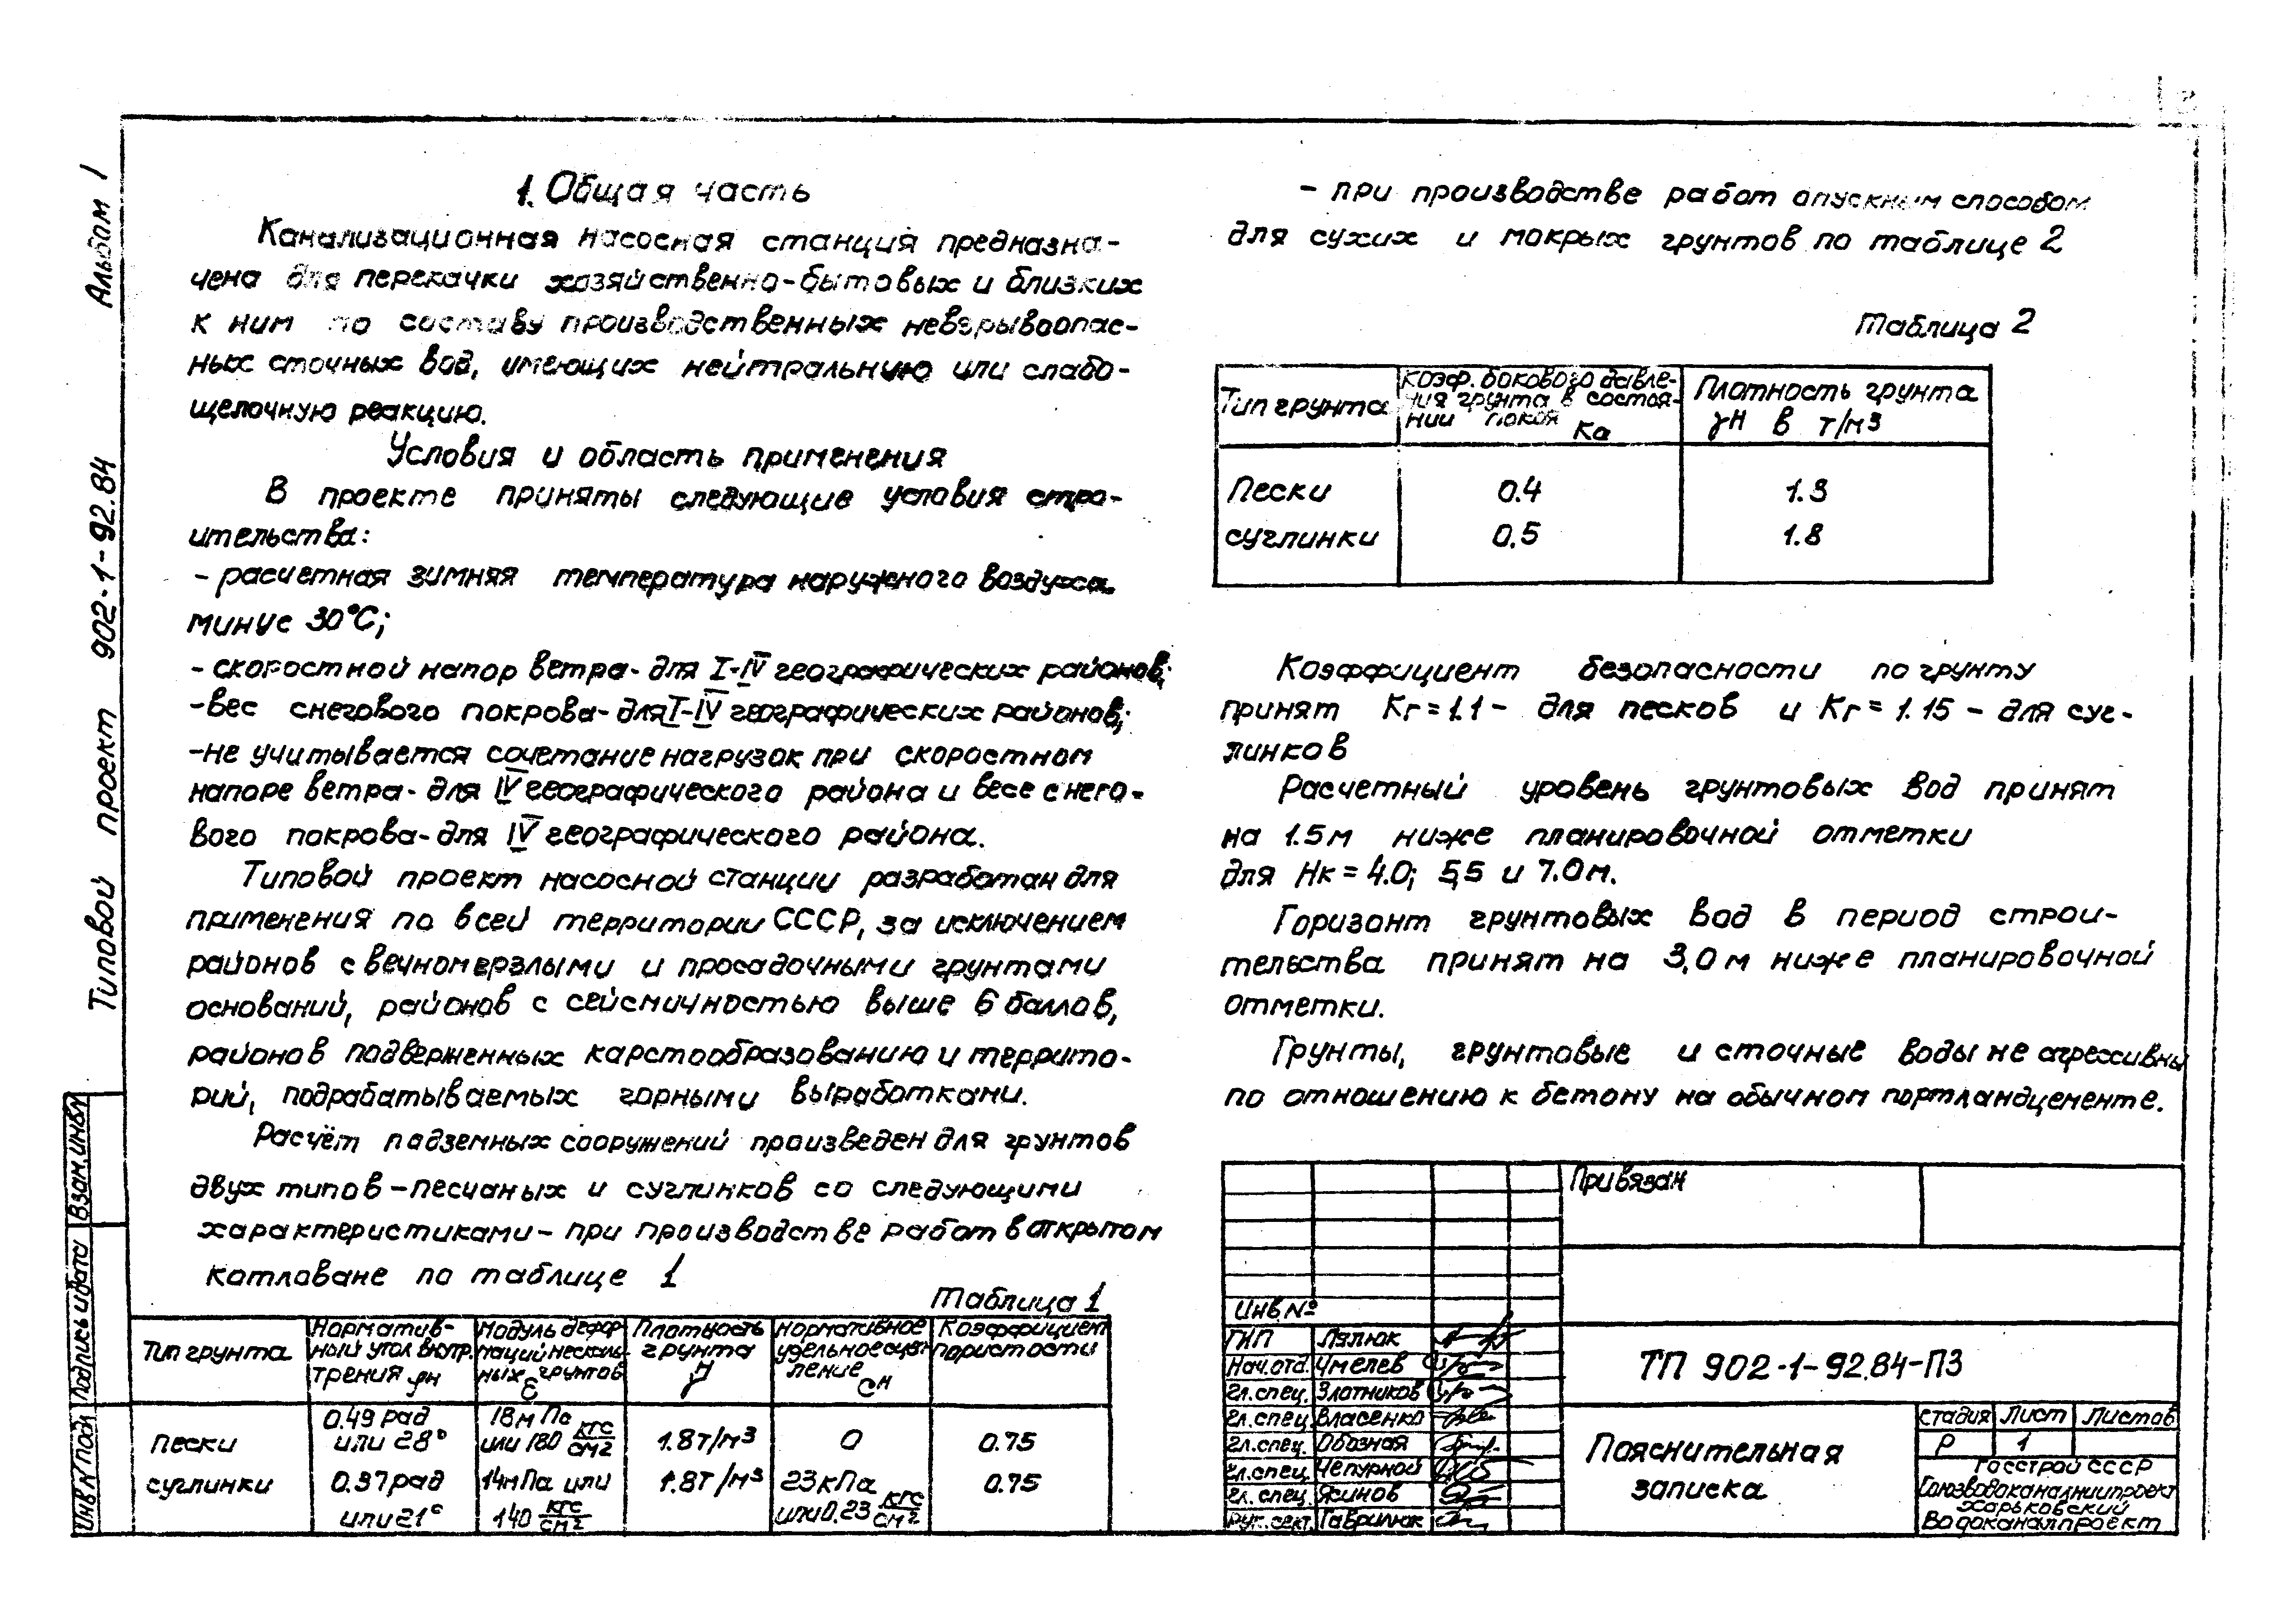 Альбом 1
Типовой проект 902-1-92.84
1. Общая часть
Канализационная насосная станция предназна-
чена для перекачки хозяйственно-бытовых и близких
к ним по составу производственных невзрывоопас-
ных сточных вод, имеющих нейтральную или слабо-
щелочную реакцию.
Условия и область применения
В проекте приняты следующие условия стро-
ительства:
- расчетная зимняя температура наружного воздуха
минус 30°С;
- скоростной напор ветра - для I-IV географических районов;
- вес снегового покрова - для I-IV географических районов;
- не учитывается сочетание нагрузок при скоростном
напоре ветра - для IV географического района и весе снего-
вого покрова - для IV географического района.
Типовой проект насосной станции разработан для
применения по всей территории СССР, за исключением
районов с вечномерзлыми и просадочными грунтами
оснований, районов с сейсмичностью выше 6 баллов,
районов подверженных карстообразованию и террито-
рий, подрабатываемых горными выработками.
Расчёт подземных сооружений произведен для грунтов
двух типов - песчаных и суглинков со следующими
характеристиками - при производстве работ в открытом
котловане по таблице 1
Таблица 1
Тип грунта
Норматив-
ный угол внутр.
трения φн
Модуль дефор-
маций нескаль-
ных грунтов
Е
Плотность
грунта
γн
Нормативное
удельное сцеп-
ление
Сн
Коэффициент
пористости
пески
0.49 рад
или 28°
18 мПа
или 180 кгс/см2
1.8т/м3
0
0.75
суглинки
0.37 рад
или 21°
14мПа или
140 кгс/см2
1.8т/м3
23кПа
или 0.23 кгс/см2
0.75
- при производстве работ опускным способом
для сухих и мокрых грунтов по таблице 2
Таблица 2
Тип грунта
Коэф. бокового давле-
ния грунта в состоя-
нии покоя
Ка
Плотность грунта
γн в т/м3
Пески
0.4
1.3
суглинки
0.5
1.8
Коэффициент безопасности по грунту
принят Кг = 1.1 - для песков и Кг = 1.15 - для суг-
линков
Расчетный уровень грунтовых вод принят
на 1.5м ниже планировочной отметки
для Нк = 4.0; 5,5 и 7.0м.
Горизонт грунтовых вод в период строи-
тельства принят на 3,0м ниже планировочной
отметки.
Грунты, грунтовые и сточные воды не агрессивны
по отношению к бетону на обычном портландцементе.
Привязан
Инв.№
ГИП Лялюк
Нач.отд. Чмелев
Гл.спец. Златников
Гл.спец. Власенко
Гл.спец. Обозная
Гл.спец. Чепурной
Гл.спец. Ясинов
Рук.сект. Гаврилюк
ТП 902-1-92.84-ПЗ
Пояснительная
записка
стадия Лист Листов
Р 1
Госстрой СССР
Союзводоканалниипроект
Харьковский
Водоканалпроект
Взам.инв.№
Подпись и дата
Инв № подл